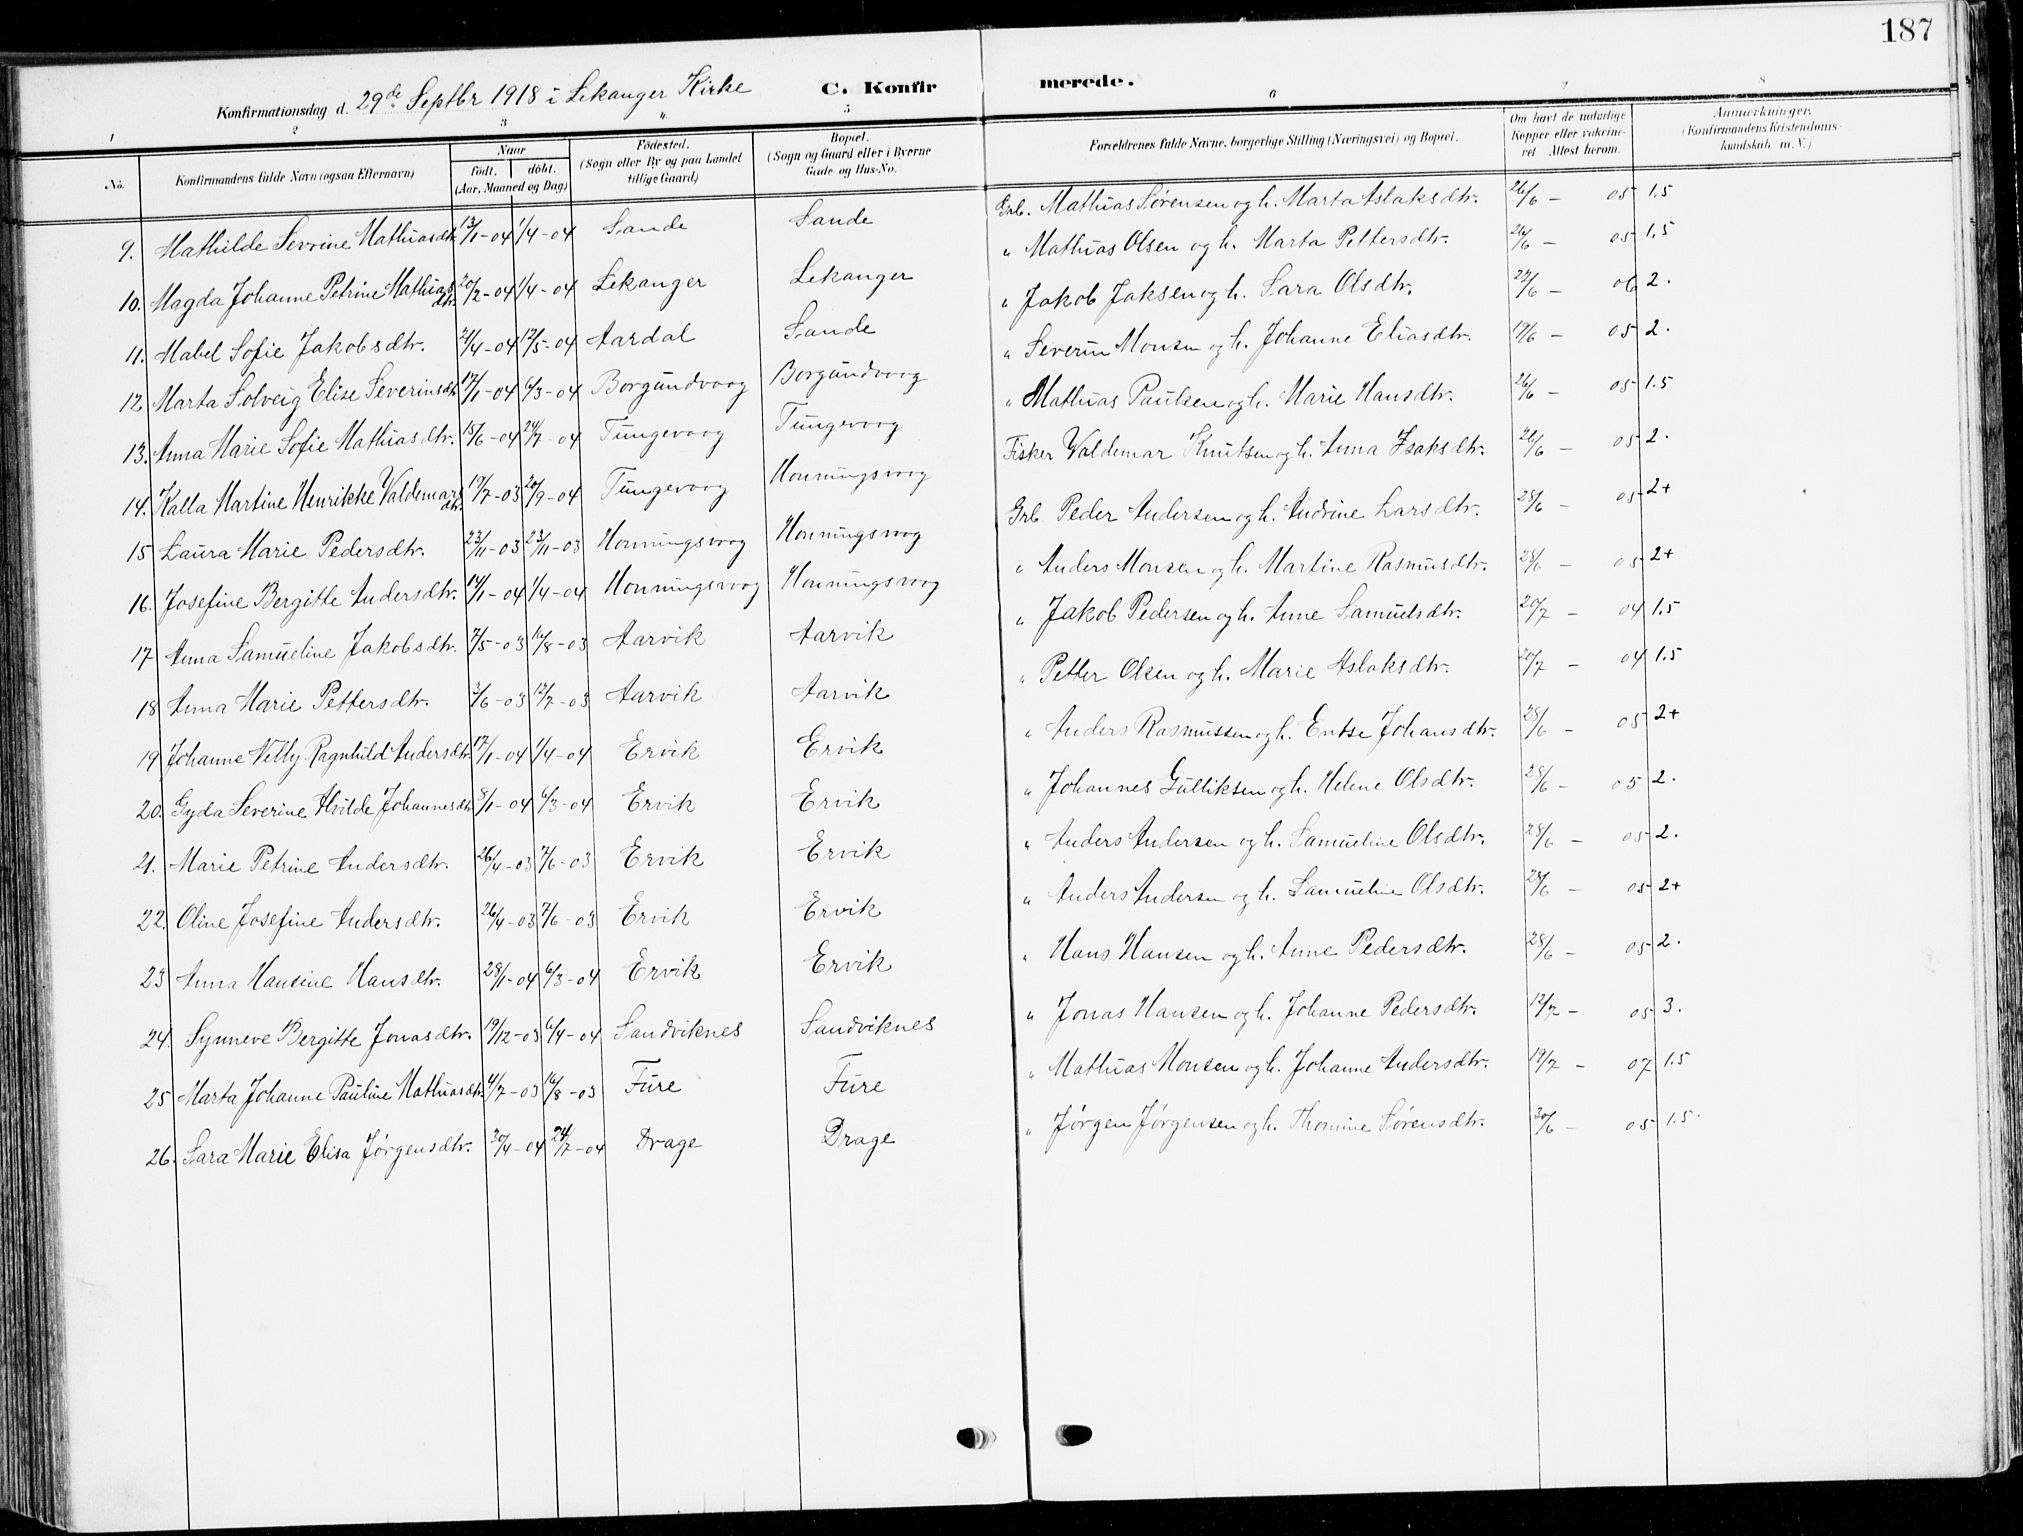 187
Konfirmationsdag d. 29de Septbr 1918 i Lekanger Kirke C. Konfirmerede.
1 2 3 4 5 6 7 8
No. Konfirmandens fulde Navn (ogsaa Efternavn) Naar født. døbt. (Aar, Maaned og Dag) Fødested. (Sogn eller By og paa Landet tillige Gaard) Bopæl. (Sogn og Gaard eller i Byerne Gade og Hus-No. Forældrenes fulde Navne, borgerlige Stilling (Næringsvei) og Bopæl. Om havt de naturlige Kopper eller vakcineret Attest herom. Anmærkninger. (Konfirmandens Kristendomskundskab m. V.)
9. Mathilde Sevrine Mathiasdtr. 13/1-04 1/4-04 Sande Sande Grb. Mathias Sørensen og h. Marta Aslaksdtr. 26/6 - 05 1.5
10. Magda Johanne Petrine Mathiasdtr. 20/2-04 1/4-04 Lekanger Lekanger " Mathias Olsen og h. Marta Pettersdtr. 26/6 - 05 1.5
11. Mabel Sofie Jakobsdtr. 21/4-04 12/5-04 Aardal Sande " Jakob Jaksen og h. Sara Olsdtr. 22/6 - 06 2.
12 Marta Solveig Elise Severinsdtr. 17/1-04 6/3-04 Borgundvaag Borgundvaag " Severin Monsen og h. Johanne Eliasdtr. 19/6 - 05 2.
13. Anna Marie Sofie Mathiasdtr. 15/6-04 24/7-04 Tungevaag Tungevaag " Mathias Paulsen og h. Marie Hansdtr. 26/6 - 05 1.5
14. Kalla Martine Henrikke Valdemarsdtr. 19/7-03 20/9-04 Tungevaag Honningsvaag Fisker Valdemar Knutsen og h. Anna Isaksdtr. 26/6 - 05 2.
15 Laura Marie Pedersdtr. 23/11-03 23/11-03 Honningsvaag Honningsvaag Grb. Peder Andersen og h. Andrine Larsdtr. 28/6 - 05 2+
16. Josefine Bergitte Andersdtr. 14/1-04 1/4-04 Honningsvaag Honningsvaag " Anders Monsen og h. Martine Rasmusdtr. 28/6 - 05 2+
17 Anna Samueline Jakobsdtr. 7/5-03 16/8-03 Aarvik Aarvik " Jakob Pedersen og h. Anne Samuelsdtr. 20/7 - 04 1.5
18 Anna Marie Pettersdtr. 3/6-03 12/7-03 Aarvik Aarvik " Petter Olsen og h. Marie Aslaksdtr. 20/7 - 04 1.5
19 Johanne Nelly Ragnhild Andersdtr. 17/1-04 1/4-04 Ervik Ervik " Anders Rasmussen og h. Entse Johansdtr. 28/6 - 05 2+
20. Gyda Severine Hvilde Johannesdtr 8/1-04 6/3-04 Ervik Ervik " Johannes Gulliksen og h. Helene Olsdtr. 28/6 - 05 2.
21. Marie Petrine Andersdtr. 26/4-03 7/6-03 Ervik Ervik " Anders Andersen og h. Samueline Olsdtr. 28/6 - 05 2.
22. Oline Josefine Andersdtr. 26/4-03 7/6-03 Ervik Ervik " Anders Andersen og h. Samueline Olsdtr. 28/6 - 05 2+
23 Anna Hansine Hansdtr. 28/1-04 6/3-04 Ervik Ervik " Hans Hansen og h. Anne Pedersdtr. 28/6 - 05 2.
24. Synneve Bergitte Jonasdtr. 19/12-03 6/4-04 Sandviknes Sandviknes " Jonas Hansen og h. Johanne Pedersdtr. 12/7 - 05 3.
25 Marta Johanne Pauline Mathiasdtr. 4/7-03 16/8-03 Fure Fure " Mathias Monsen og h. Johanne Andersdtr. 19/7 - 07 1.5
26. Sara Marie Elisa Jørgensdtr. 30/4-04 24/7-04 Drage Drage " Jørgen Jørgensen og h. Thomine Sørensdtr. 30/6 - 05 1.5.